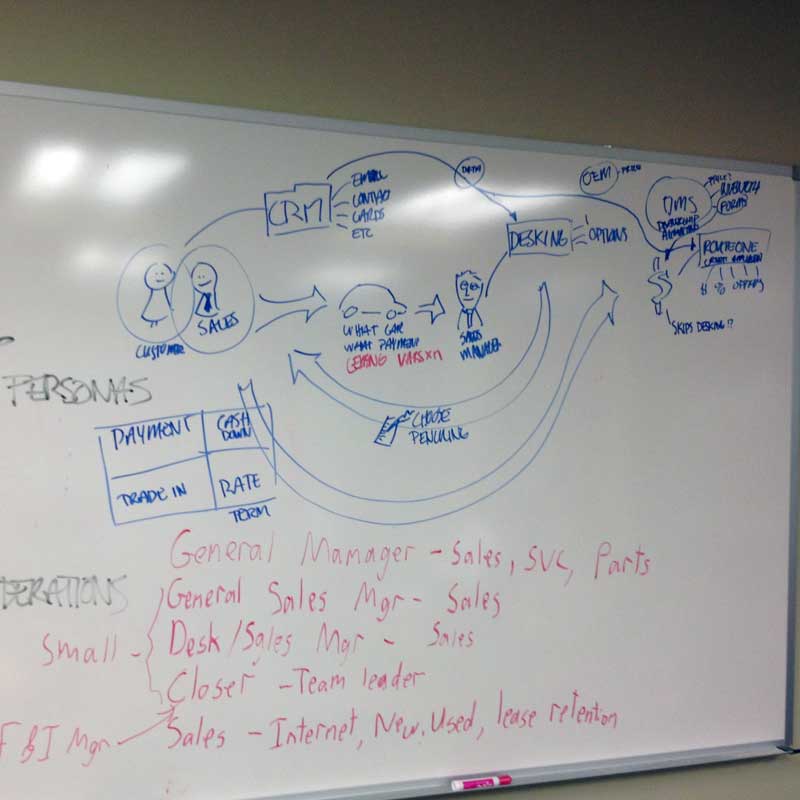 EMAIL
CONTACT
CARDS
ETC
CRM
DATA
OEM
DMS
INVENTORY
FORMS
DESKING
OPTIONS
ROUTEONE
$ %
SKIPS DESKING !?
CUSTOMER
SALES
WHAT CAR
WHAT PAYMENT
SALES
MANAGER
PERSONAS
CHOOSE
PENCILING
PAYMENT
CASH
DOWN
TRADE IN
RATE
TERM
General Manager - Sales, SVC, Parts
ERATIONS
General Sales Mgr - Sales
Small - Desk/Sales Mgr - Sales
Closer - Team leader
F&I Mgr
Sales - Internet, New, Used, lease retention